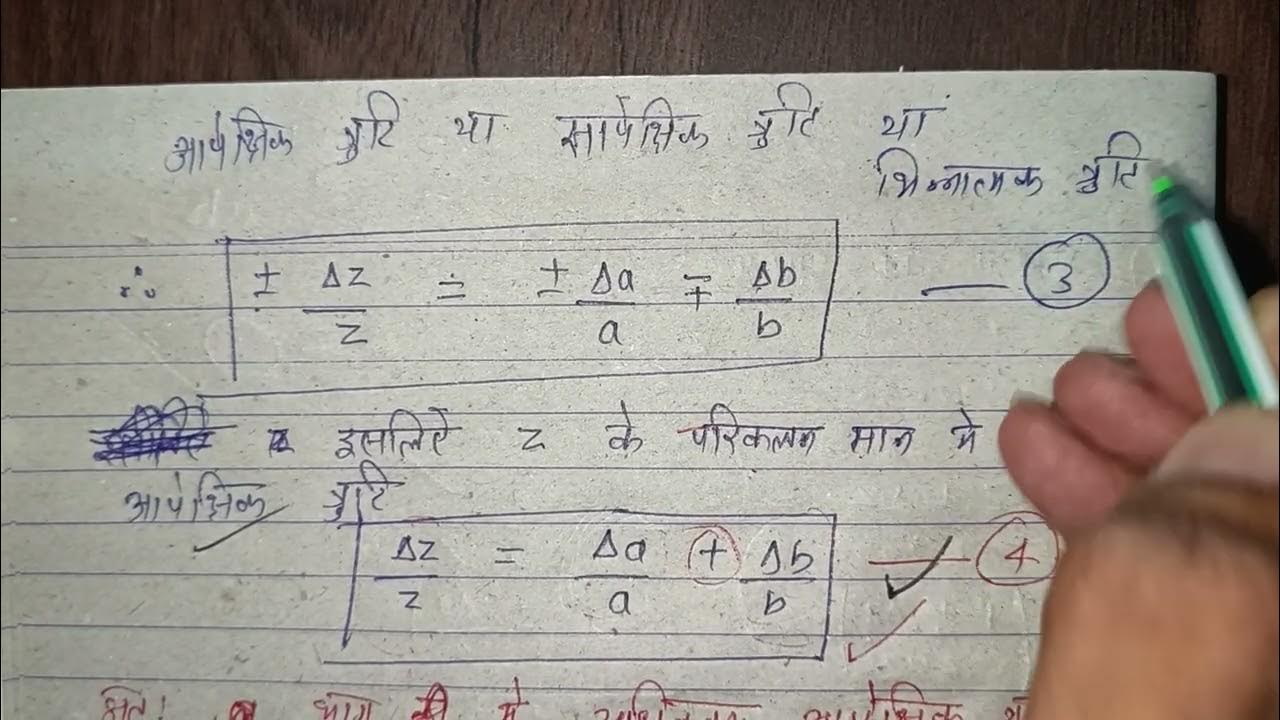 आपेक्षिक त्रुटि या सापेक्षिक त्रुटि या
भिन्नात्मक त्रुटि
∴ ± Δz/z = ± Δa/a ∓ Δb/b — 3
इसलिऐ z के परिकलन मान मे
आपेक्षिक त्रुटि
Δz/z = Δa/a + Δb/b — 4
अतः भाग में अधिकतम आपेक्षिक